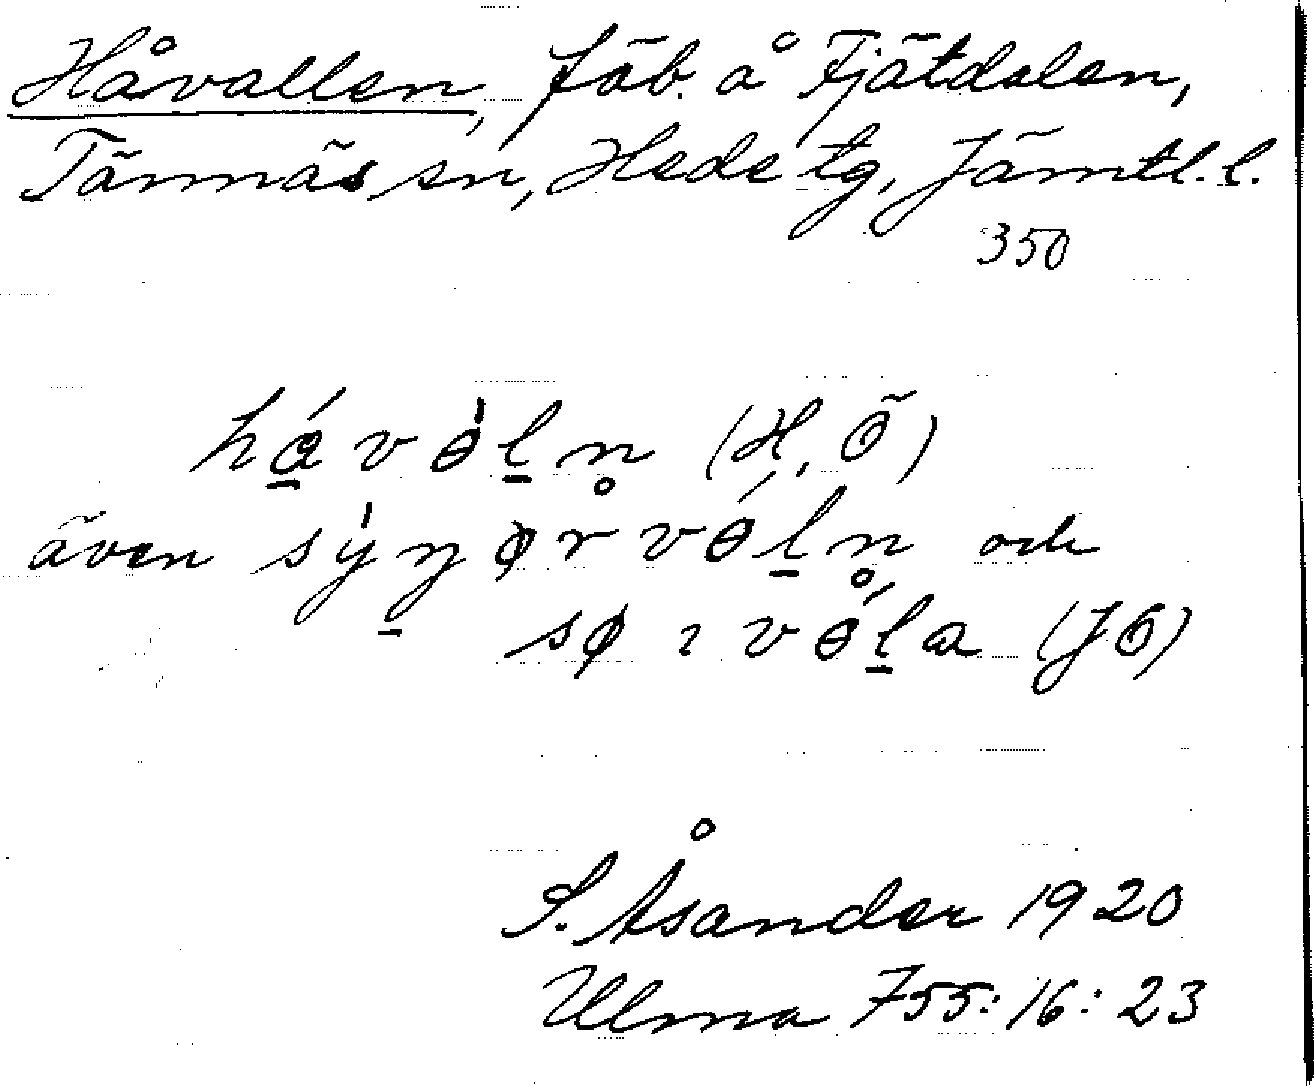 Håvallen, fäb. å Fjätdalen,
Tännäs sn, Hede tg, Jämtl. l.
350
há̱vɵ̀ḻn̥ (H, Ö)
även sỳŋ̱ørvɵ́ḻn̥ och
sø ı vɵ́ḻa (JÖ)
S. Åsander 1920
Ulma 755:16:23